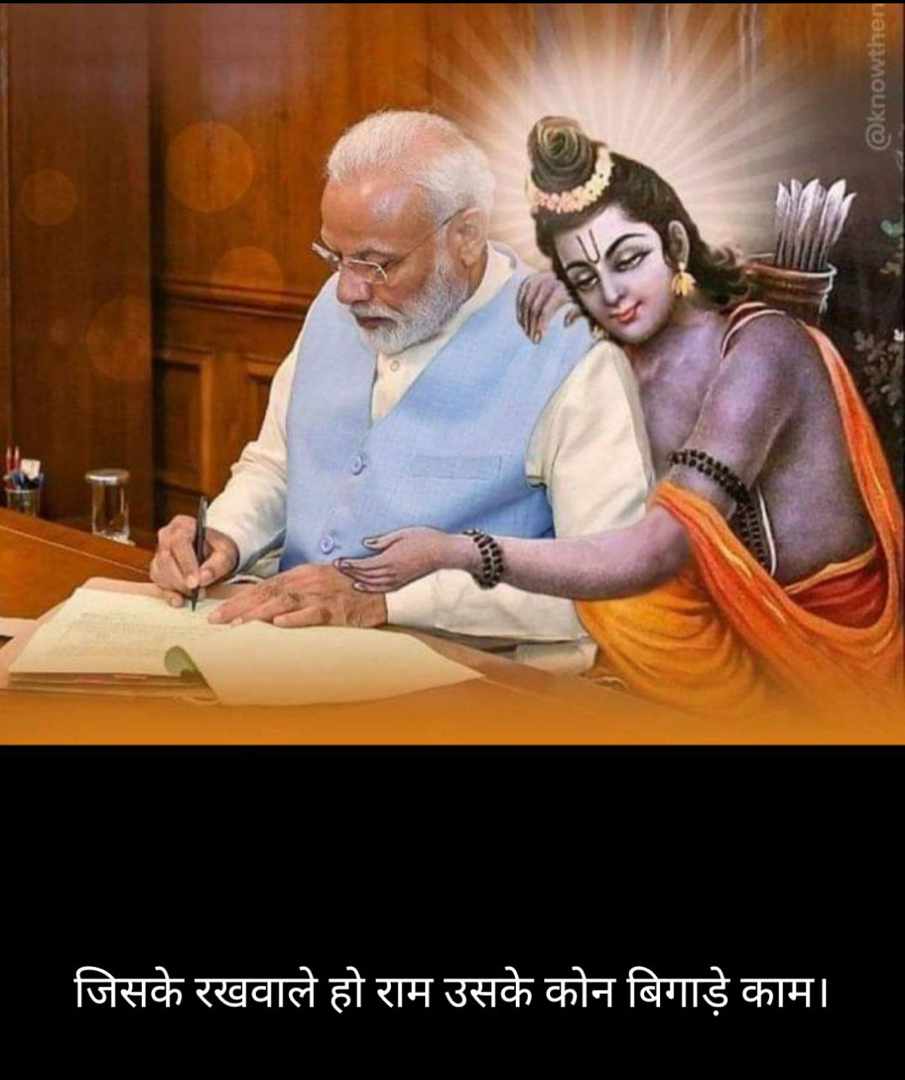 @knowthen
जिसके रखवाले हो राम उसके कोन बिगाड़े काम।